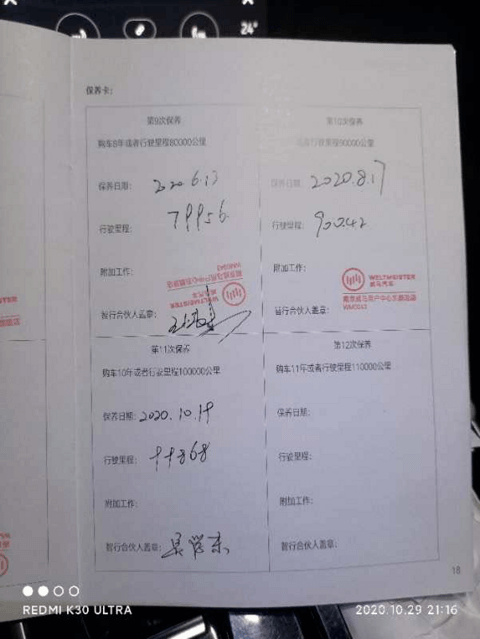 24°
保养卡：
第9次保养
购车8年或者行驶里程80000公里
保养日期： 2020.6.13
行驶里程： 79956
附加工作：
WELTMEISTER
威马汽车
智行合伙人盖章：
第10次保养
行驶里程90000公里
保养日期： 2020.8.17
行驶里程： 90242
附加工作：
WELTMEISTER
威马汽车
智行合伙人盖章：
第11次保养
购车10年或者行驶里程100000公里
保养日期： 2020.10.19
行驶里程： 99868
附加工作：
智行合伙人盖章：
第12次保养
购车11年或者行驶里程110000公里
保养日期：
行驶里程：
附加工作：
智行合伙人盖章：
18
REDMI K30 ULTRA
2020.10.29 21:16